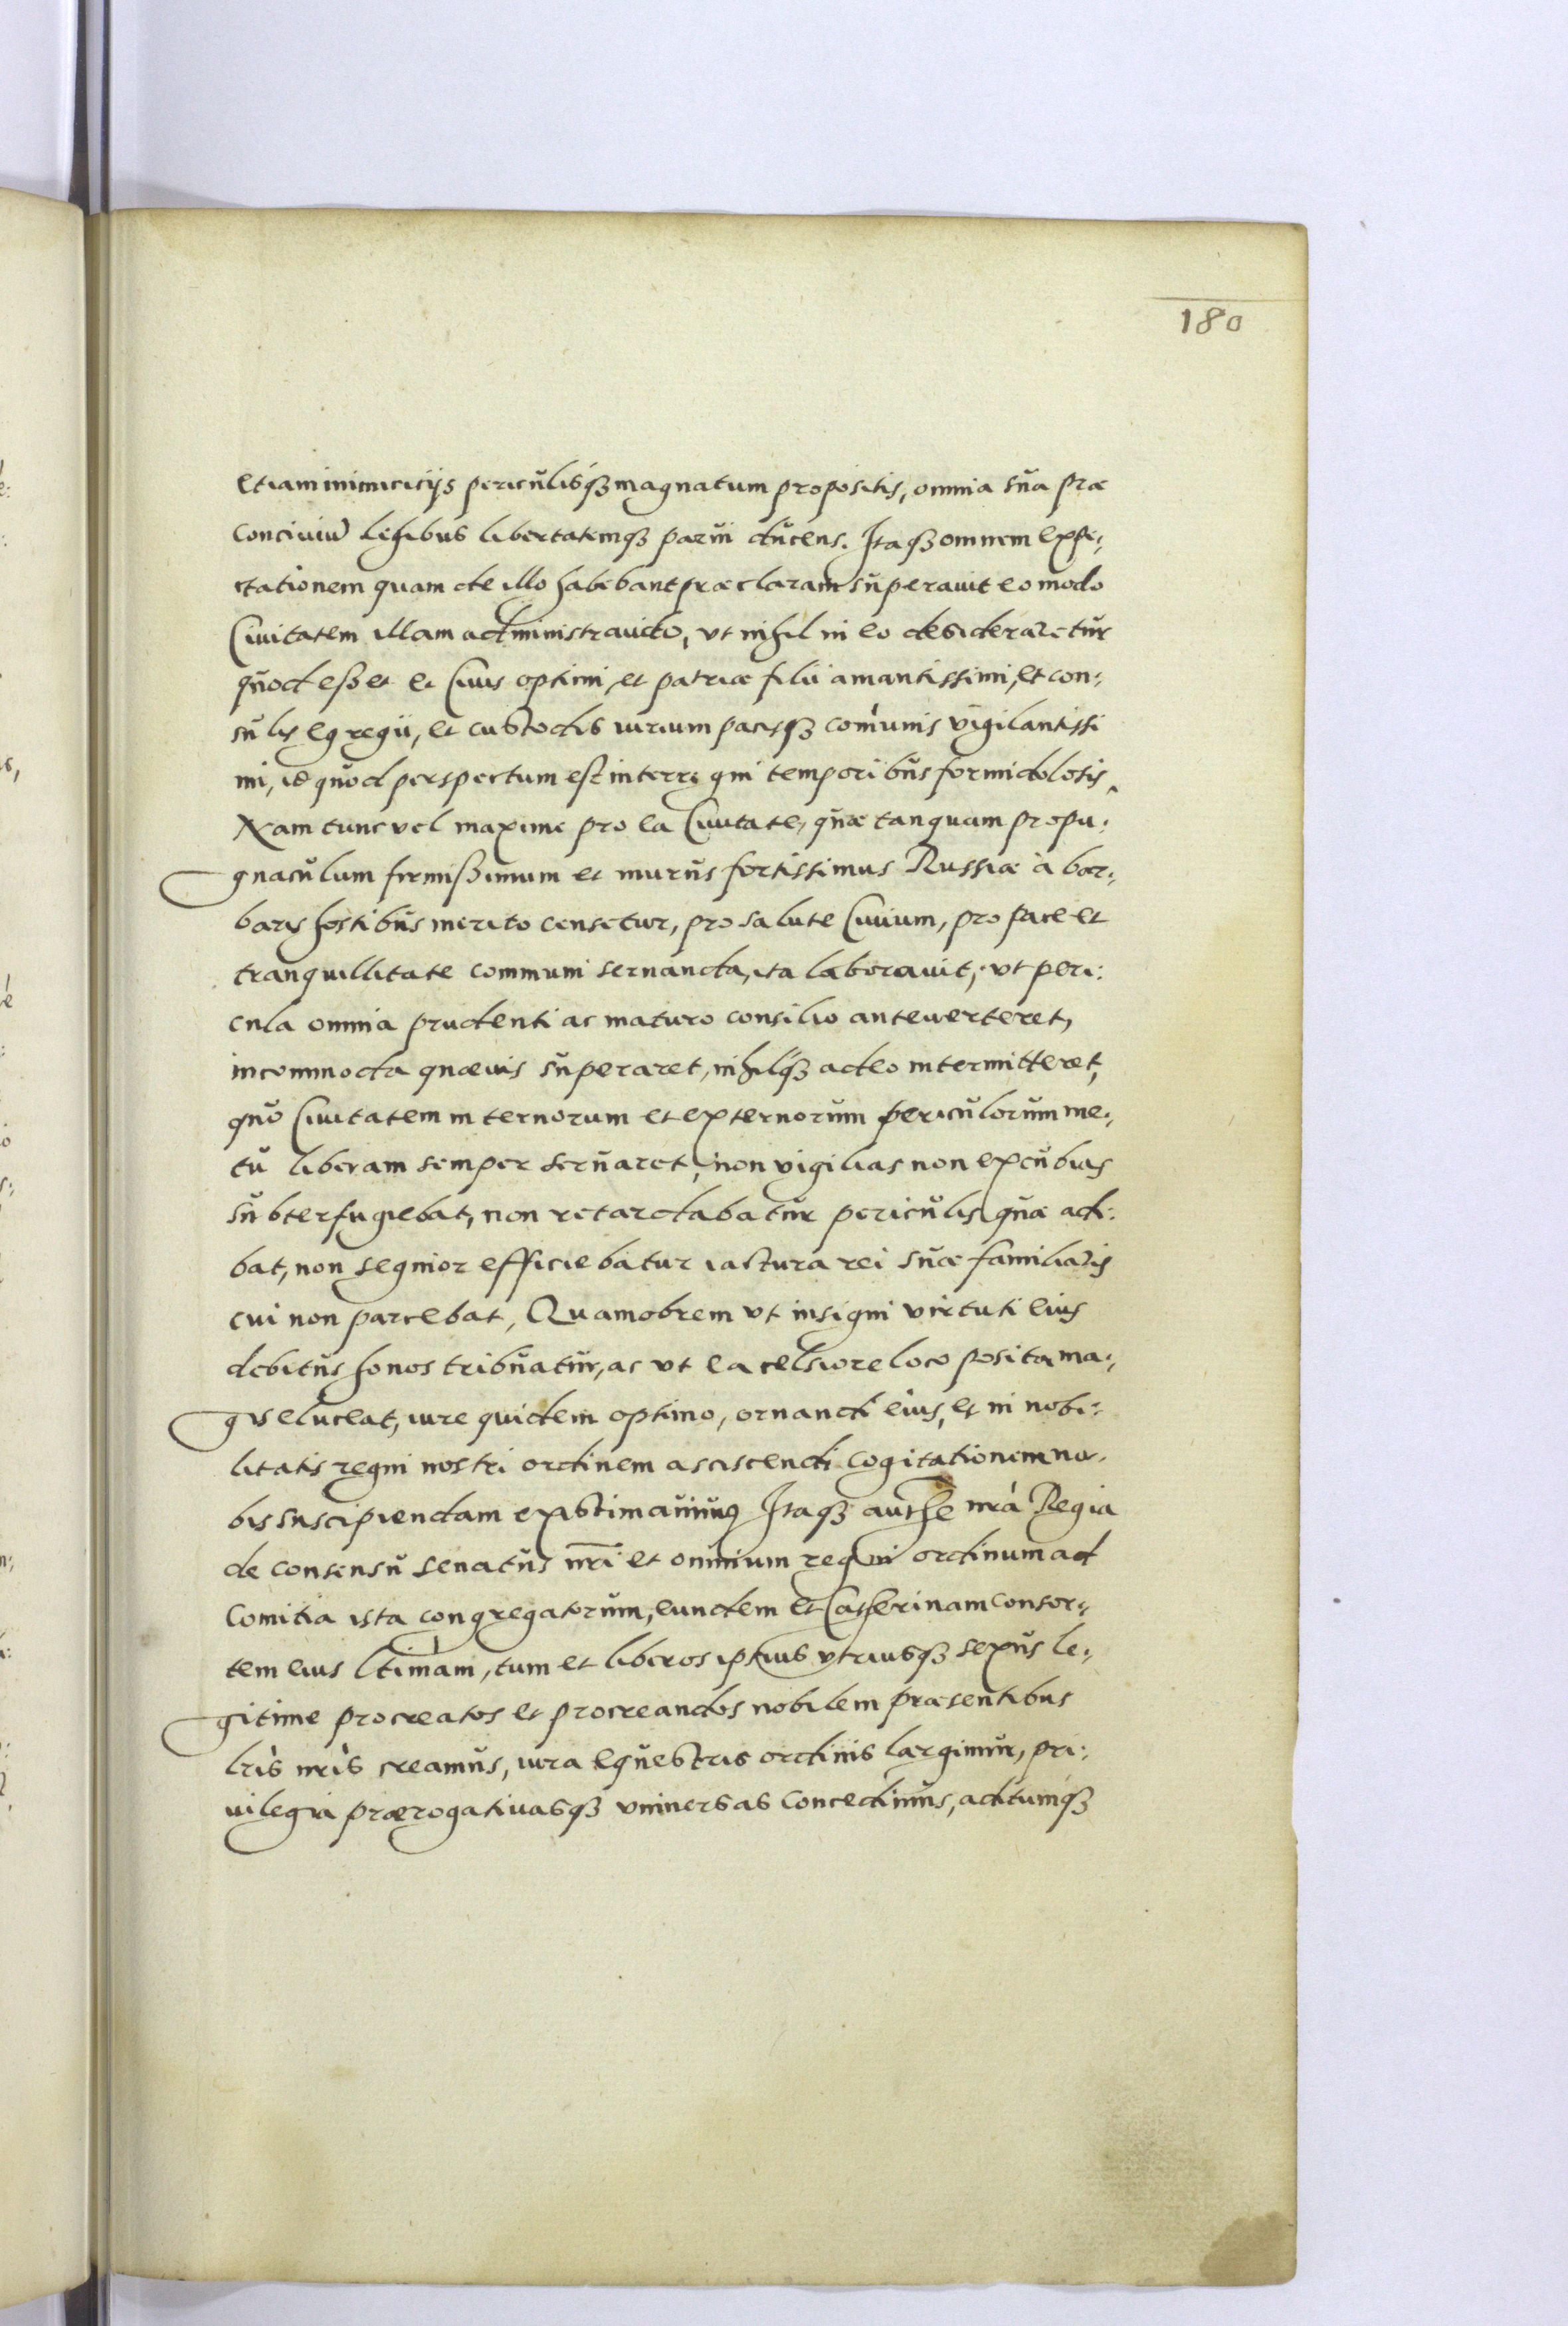 180
etiam inimicicijs periculisq₃ magnatum propositis, omnia sua præ
conciuiũ legibus libertatemq₃ parui ducens. Itaq₃ omnem expe:
ctationem quam de illo habebant præclaram superauit eo modo
Ciuitatem illam administrando, vt nihil in eo desideraretur
quod eßet et Ciuis optimi, et patriæ filii amantissimi, et con:
sulis egregii, et custodis iurium pacisq₃ com̃unis vigilantissi
mi, id quod perspectum est interregni temporibus formidolosis.
Nam tunc vel maxime pro ea Ciuitate, quæ tanquam propu:
gnaculum firmißimum et murus fortissimus Russiæ à bar:
baris hostibus merito censetur, pro salute Ciuium, pro pace et
tranquillitate communi seruanda, ita laborauit, vt peri:
cula omnia prudenti ac maturo consilio anteuerteret,
incommoda quæuis superaret, nihilq₃ adeo intermitteret,
quo Ciuitatem internorum et externorum periculorum me:
tu liberam semper seruaret, non vigilias non excubias
subterfugiebat, non retardabatur periculis quæ adi:
bat, non segnior efficiebatur iactura rei suæ familiaris
cui non parcebat, Quamobrem vt insigni virtuti eius
debitus honos tribuatur, ac vt ea celsiore loco posita ma:
gis eluceat, iure quidem optimo, ornandi eius, et in nobi:
litatis regni nostri ordinem asciscendi cogitationem no:
bis suscipiendam existimauimus Itaq₃ authe nr̃a Regia
de consensu senatus nr̃i et omnium regni ordinum ad
Comitia ista congregatorum, eundem et Catherinam consor:
tem eius ltimam, tum et liberos ipsius vtriusq₃ sexus le:
gitime procreatos et procreandos nobilem præsentibus
lr̃is nr̃is creamus, iura equestris ordinis largimur, pri:
uilegia prærogatiuasq₃ vniuersas concedimus, aditumq₃